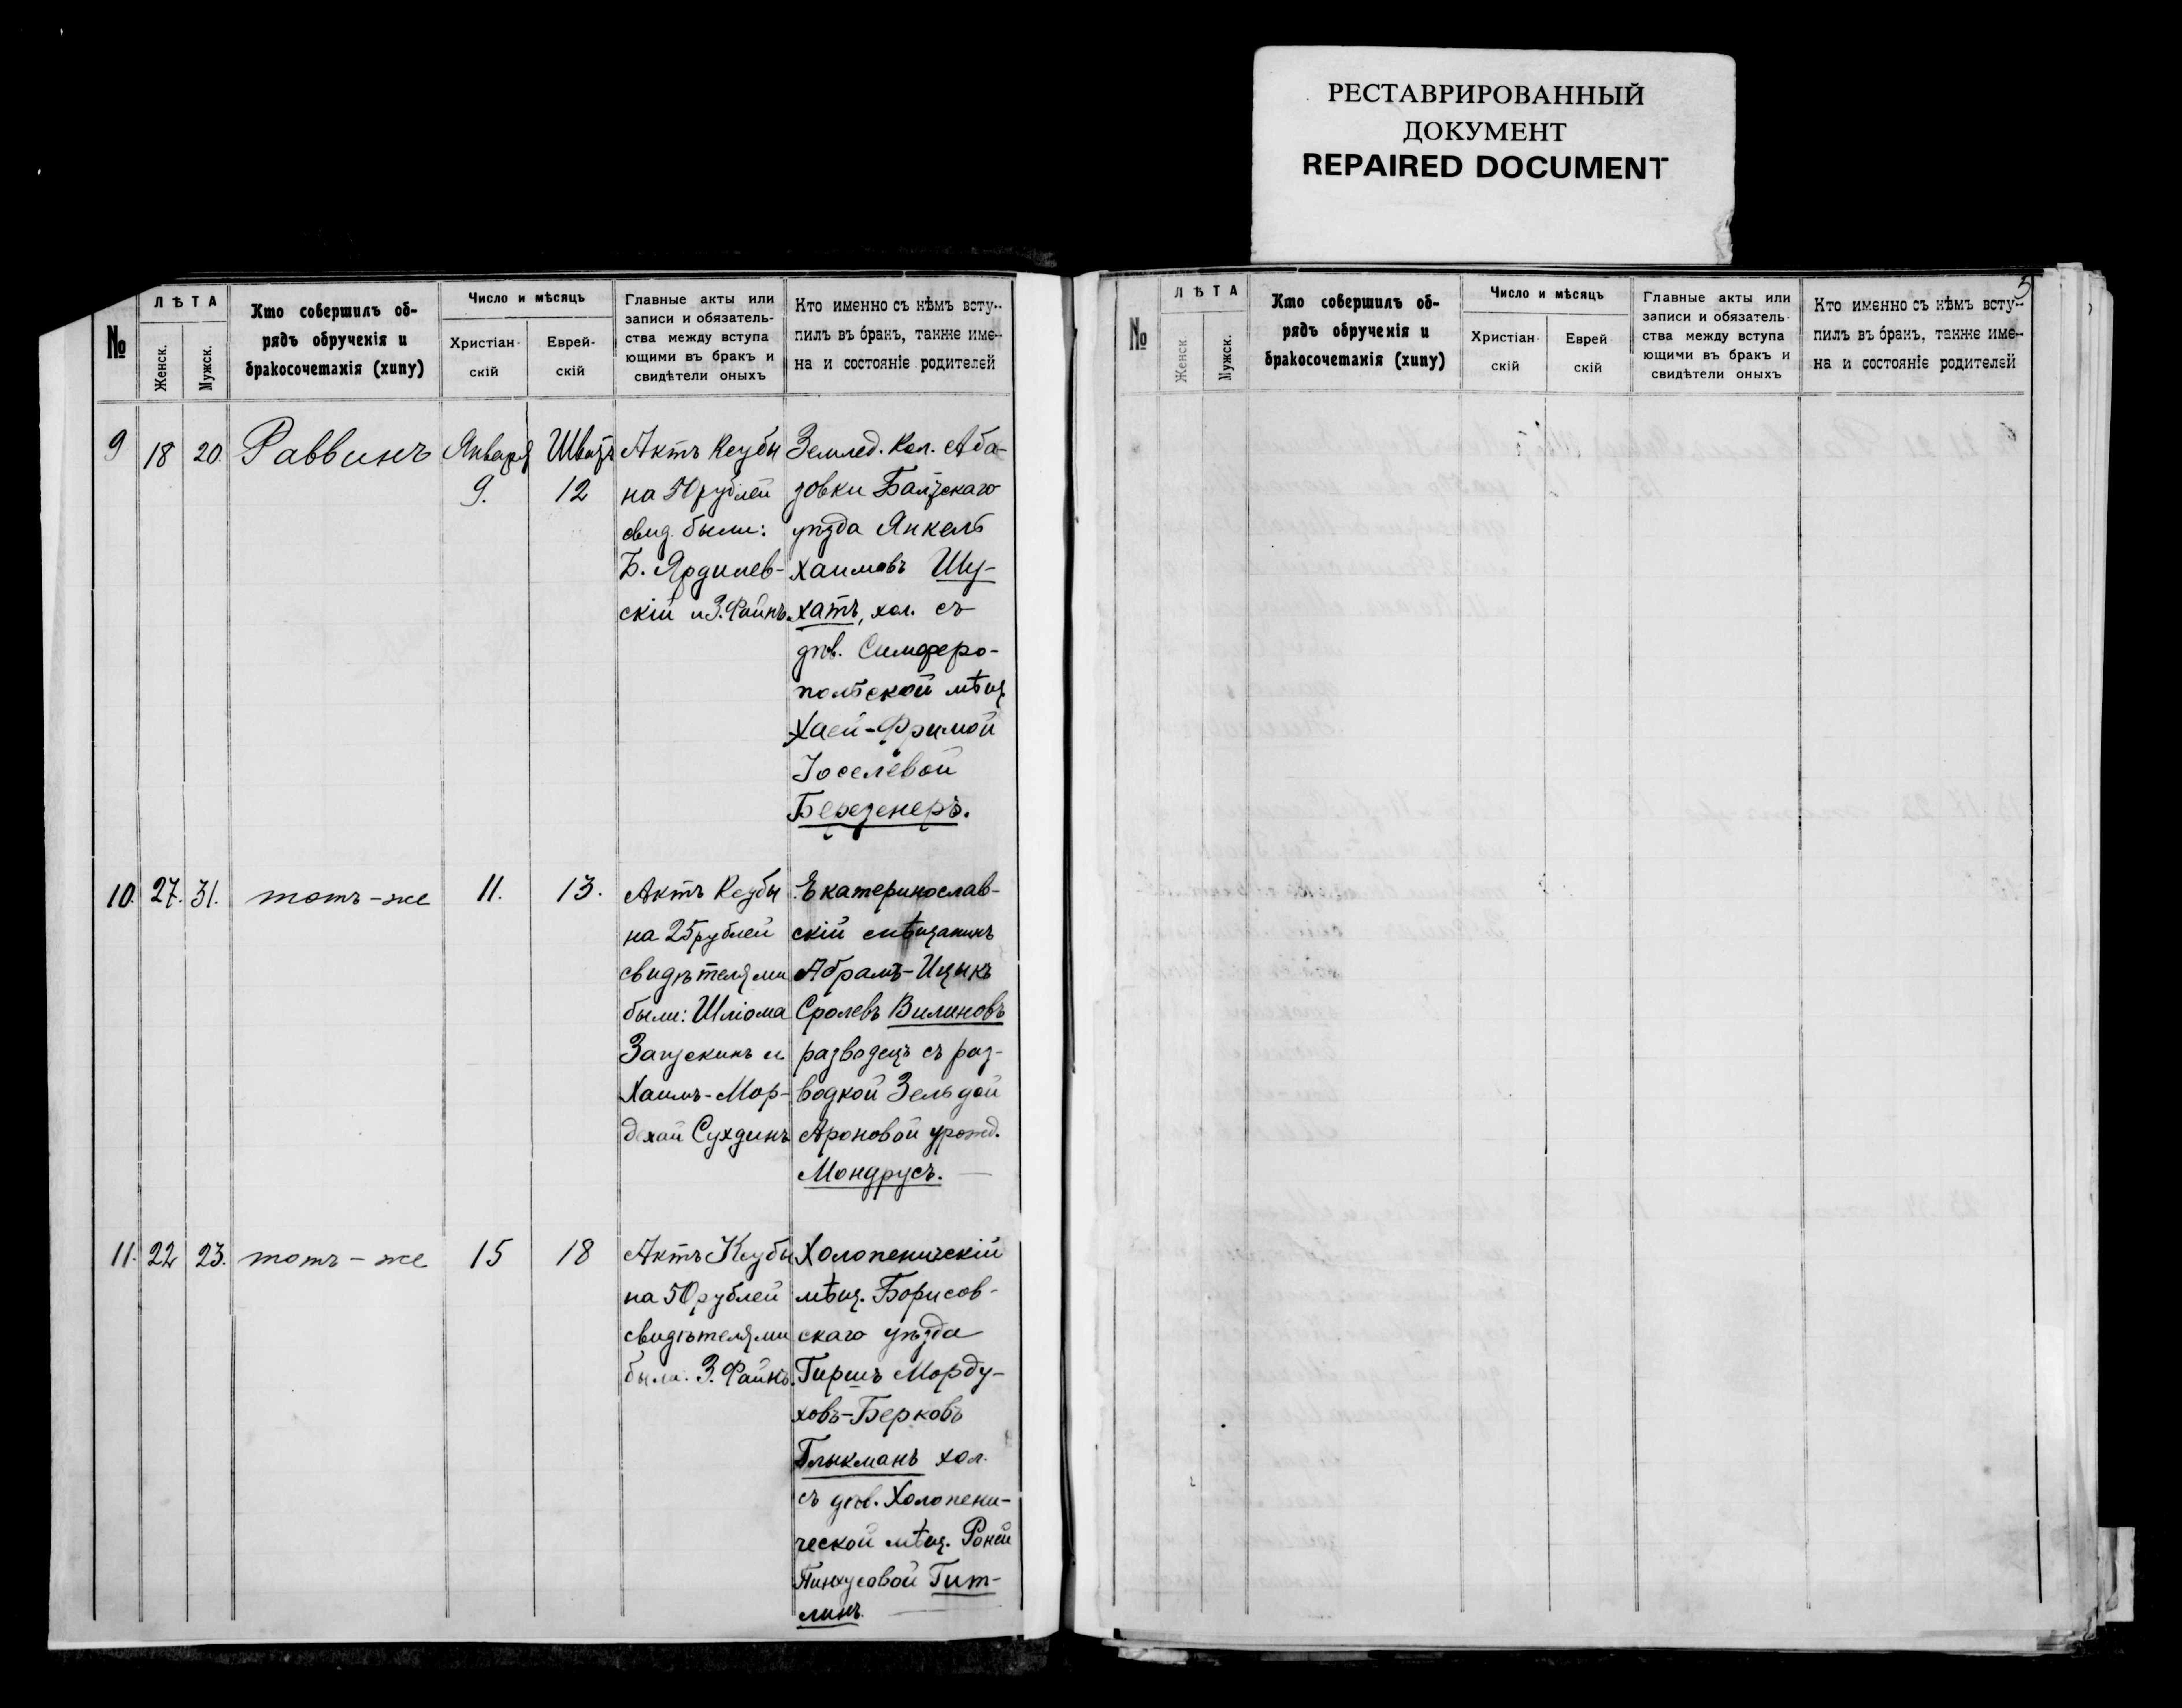 РЕСТАВРИРОВАННЫЙ
ДОКУМЕНТ
REPAIRED DOCUMENT
№
ЛѢТА
Женск.
Мужск.
Кто совершилъ об-
рядъ обрученія и
бракосочетанія (хипу)
Число и мѣсяцъ
Христіан-
скій
Еврей-
скій
Главные акты или
записи и обязатель-
ства между вступа
ющими въ бракъ и
свидѣтели оныхъ
Кто именно съ кѣмъ всту-
пилъ въ бракъ, также име-
на и состояніе родителей
9 18 20. Раввинъ
Января
9.
Шватъ
12
Актъ Ксубы
на 50 рублей
свид. были:
Б. Ярдилев-
скій и З. Файнъ.
Землед. Кол. Аба-
зовки Балтскаго
уѣзда Янкель
Хаимовъ Шу-
хатъ, хол. съ
дѣв. Симферо-
польской мѣщ.
Хаей-Фримой
Іоселевой
Березенеръ.
10. 27. 31. тотъ-же 11. 13.
Актъ Ксубы
на 25 рублей
свидѣтелями
были: Шліома
и
Хаимъ-Мор-
дхай Сухдинъ
Екатеринослав-
скій мѣщанинъ
Абрамъ-Ицыкъ
Сролевъ Вилиновъ
разводецъ съ раз-
водкой Зельдой
Ароновой урожд.
Мондрусъ.
11. 22 23. тотъ-же 15 18
Актъ Ксубы
на 50 рублей
свидѣтелями
были: З. Файнъ.
Холопеничскій
мѣщ. Борисов-
скаго уѣзда
Гиршъ Морду-
ховъ-Берковъ
Глыкманъ хол.
съ дѣв. Холопени-
ческой мѣщ. Роней
Пинхусовой Гит-
линъ.
5
№
ЛѢТА
Женск.
Мужск.
Кто совершилъ об-
рядъ обрученія и
бракосочетанія (хипу)
Число и мѣсяцъ
Христіан
скій
Еврей
скій
Главные акты или
записи и обязатель-
ства между вступа
ющими въ бракъ и
свидѣтели оныхъ
Кто именно съ кѣмъ всту-
пилъ въ бракъ, также име-
на и состояніе родителей